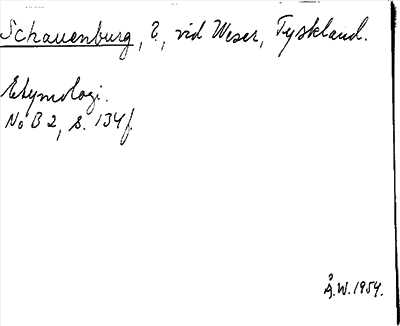 Schauenburg, ?, vid Weser, Tyskland.
Etymologi.
NoB 2, s. 134f
Å.W. 1954.